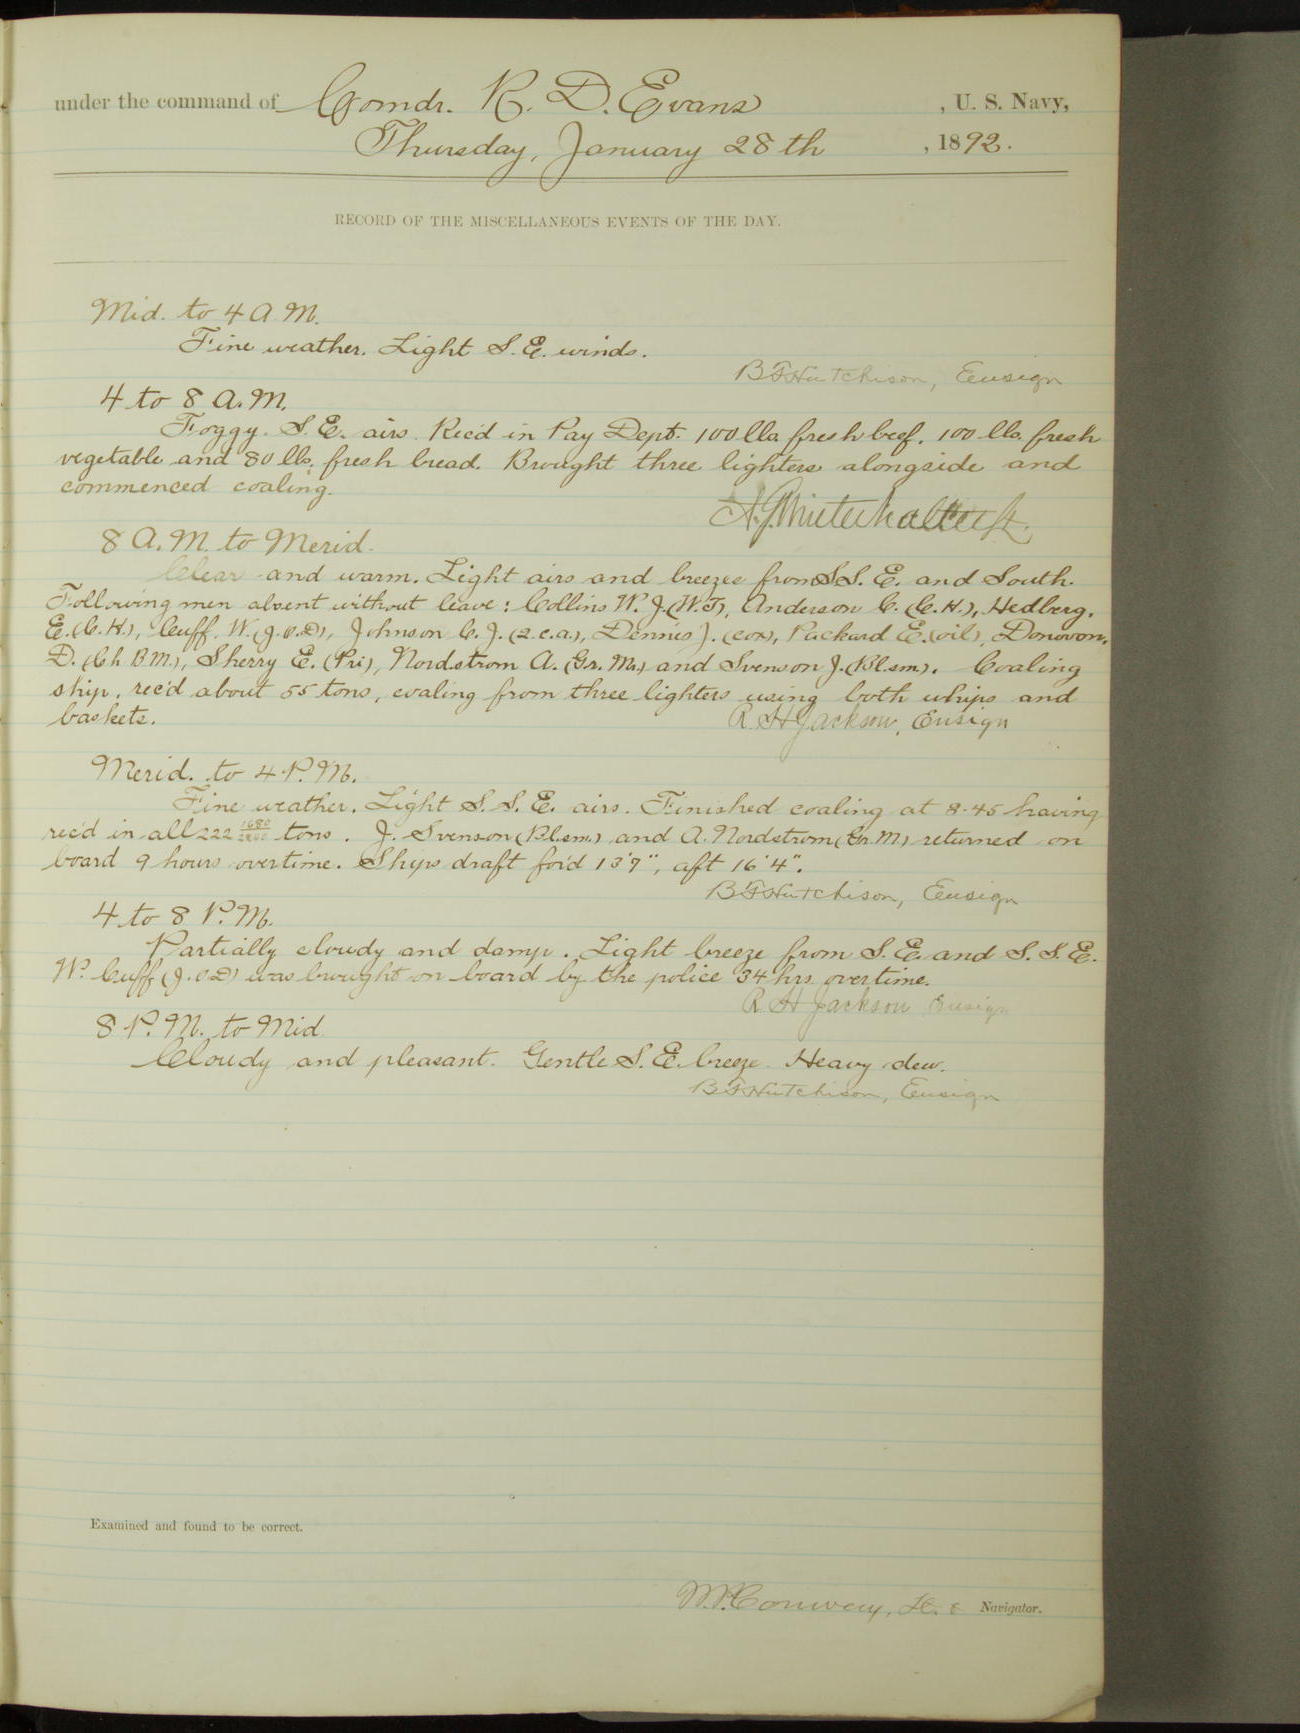 under the command of Comdr. R. D. Evans , U. S. Navy,
Thursday, January 28th , 1892.
RECORD OF THE MISCELLANEOUS EVENTS OF THE DAY.
Mid. to 4 A.M.
Fine weather. Light S.E. winds.
B F Hutchison, Ensign
4 to 8 A.M.
Foggy. S.E. airs. Rec'd in Pay Dept. 100 lbs. fresh beef, 100 lbs. fresh
vegetable and 80 lbs. fresh bread. Brought three lighters alongside and
commenced coaling.
A. G. Winterhalter Lt.
8 A.M. to Merid.
Clear and warm. Light airs and breezes from S.S.E. and South.
Following men absent without leave: Collins W. J. (W.T), Anderson C. (C.H.), Hedberg.
E. (C.H.), Cuff. W. (J.O.D), Johnson C. J. (2.c.a.), Dennis J. (cox), Packard E. (oil), Donovon,
D. (Ch. B.M.), Sherry E. (Pri), Nordstrom A. (Gr. M.) and Svenson J. (Bl.sm.). Coaling
ship, rec'd about 55 tons, coaling from three lighters using both whips and
baskets.
R. H. Jackson, Ensign
Merid. to 4 P.M.
Fine weather. Light S.S.E. airs. Finished coaling at 3.45 having
rec'd in all 222 1680/2240 tons. J. Svenson (Bl.sm.) and A. Nordstrom (Gr. M.) returned on
board 9 hours overtime. Ships draft for'd 13'7", aft 16'4".
B F Hutchison, Ensign
4 to 8 P.M.
Partially cloudy and damp. Light breeze from S.E. and S.S.E.
W. Cuff (J.O.D) was brought on board by the police 34 hrs. overtime.
R H Jackson Ensign
8 P.M. to Mid
Cloudy and pleasant. Gentle S.E. breeze. Heavy dew.
B F Hutchison, Ensign
Examined and found to be correct.
W. P. Conway, Lt. & Navigator.